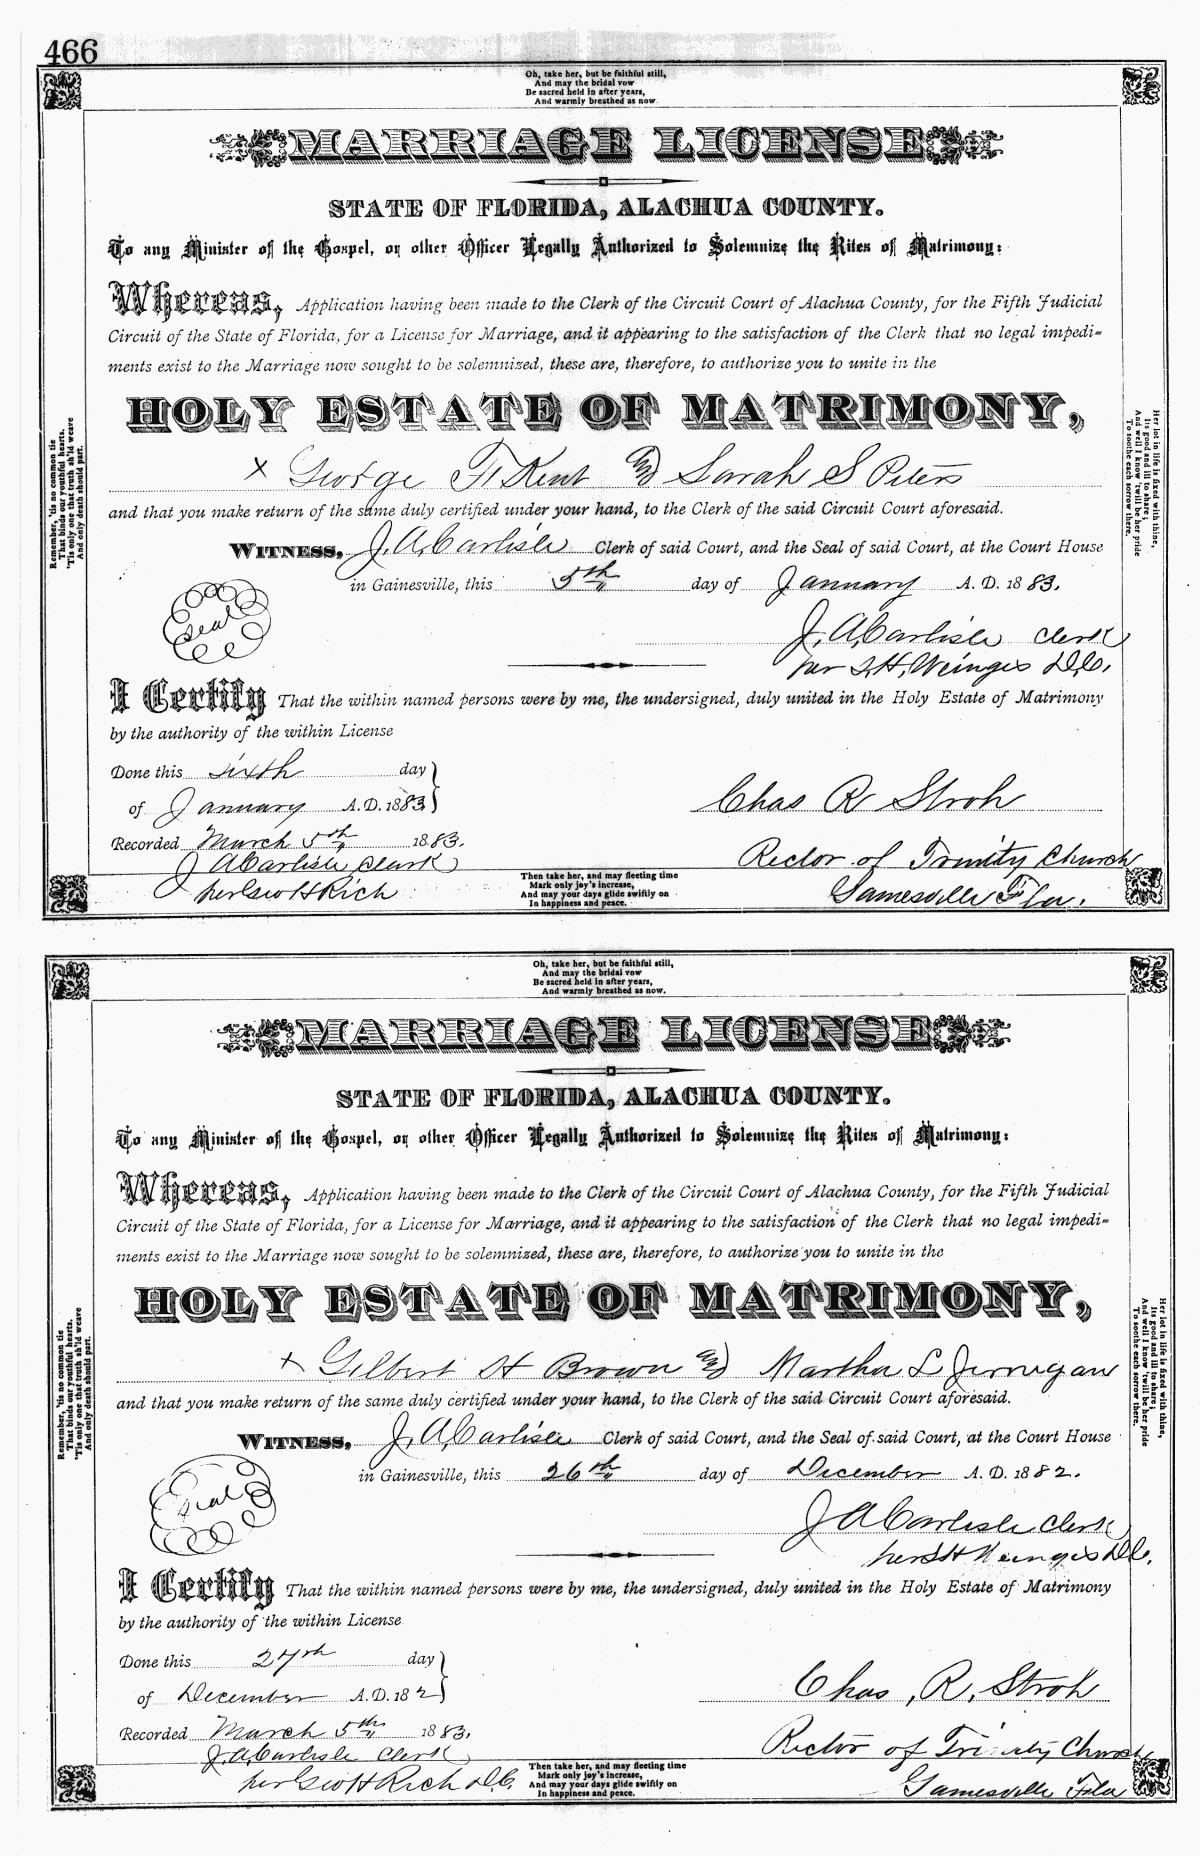 466
Oh, take her, but be faithful still,
And may the bridal vow
Be sacred held in after years,
And warmly breathed as now
MARRIAGE LICENSE
STATE OF FLORIDA, ALACHUA COUNTY.
To any Minister of the Gospel, or other Officer Legally Authorized to Solemnize the Rites of Matrimony:
Whereas, Application having been made to the Clerk of the Circuit Court of Alachua County, for the Fifth Judicial
Circuit of the State of Florida, for a License for Marriage, and it appearing to the satisfaction of the Clerk that no legal impedi-
ments exist to the Marriage now sought to be solemnized, these are, therefore, to authorize you to unite in the
HOLY ESTATE OF MATRIMONY,
x George F. Kent and Sarah S Peters
and that you make return of the same duly certified under your hand, to the Clerk of the said Circuit Court aforesaid.
WITNESS, J. A. Carlisle Clerk of said Court, and the Seal of said Court, at the Court House
in Gainesville, this 5th day of January A. D. 1883.
Seal
J. A. Carlisle Clerk
per S. H. Weinges D.C.
I Certify That the within named persons were by me, the undersigned, duly united in the Holy Estate of Matrimony
by the authority of the within License
Done this sixth day
of January A. D. 1883
Chas R Stroh
Recorded March 5th 1883.
J A Carlisle Clerk
per Geo H Rich
Rector of Trinity Church
Gainesville Fla.
Remember, 'tis no common tie
That binds our youthful hearts.
'Tis only one that truth sh'ld weave
And only death should part.
Her lot in life is fixed with thine,
Its good and ill to share;
And well I know 'twill be her pride
To soothe each sorrow there.
Then take her, and may fleeting time
Mark only joy's increase,
And may your days glide swiftly on
In happiness and peace.
Oh, take her, but be faithful still,
And may the bridal vow
Be sacred held in after years,
And warmly breathed as now.
MARRIAGE LICENSE
STATE OF FLORIDA, ALACHUA COUNTY.
To any Minister of the Gospel, or other Officer Legally Authorized to Solemnize the Rites of Matrimony:
Whereas, Application having been made to the Clerk of the Circuit Court of Alachua County, for the Fifth Judicial
Circuit of the State of Florida, for a License for Marriage, and it appearing to the satisfaction of the Clerk that no legal impedi-
ments exist to the Marriage now sought to be solemnized, these are, therefore, to authorize you to unite in the
HOLY ESTATE OF MATRIMONY,
x Gilbert H Brown and Martha L Jernegan
and that you make return of the same duly certified under your hand, to the Clerk of the said Circuit Court aforesaid.
WITNESS, J. A. Carlisle Clerk of said Court, and the Seal of said Court, at the Court House
in Gainesville, this 26th day of December A. D. 1882.
Seal
J A Carlisle Clerk
per S H Weinges D.C.
I Certify That the within named persons were by me, the undersigned, duly united in the Holy Estate of Matrimony
by the authority of the within License
Done this 27th day
of December A. D. 182
Chas. R. Stroh
Recorded March 5th 1883.
J. A. Carlisle Clerk
per Geo H Rich D.C.
Rector of Trinity Church
Gainesville Fla
Remember, 'tis no common tie
That binds our youthful hearts.
'Tis only one that truth sh'ld weave
And only death should part.
Her lot in life is fixed with thine,
Its good and ill to share;
And well I know 'twill be her pride
To soothe each sorrow there.
Then take her, and may fleeting time
Mark only joy's increase,
And may your days glide swiftly on
In happiness and peace.